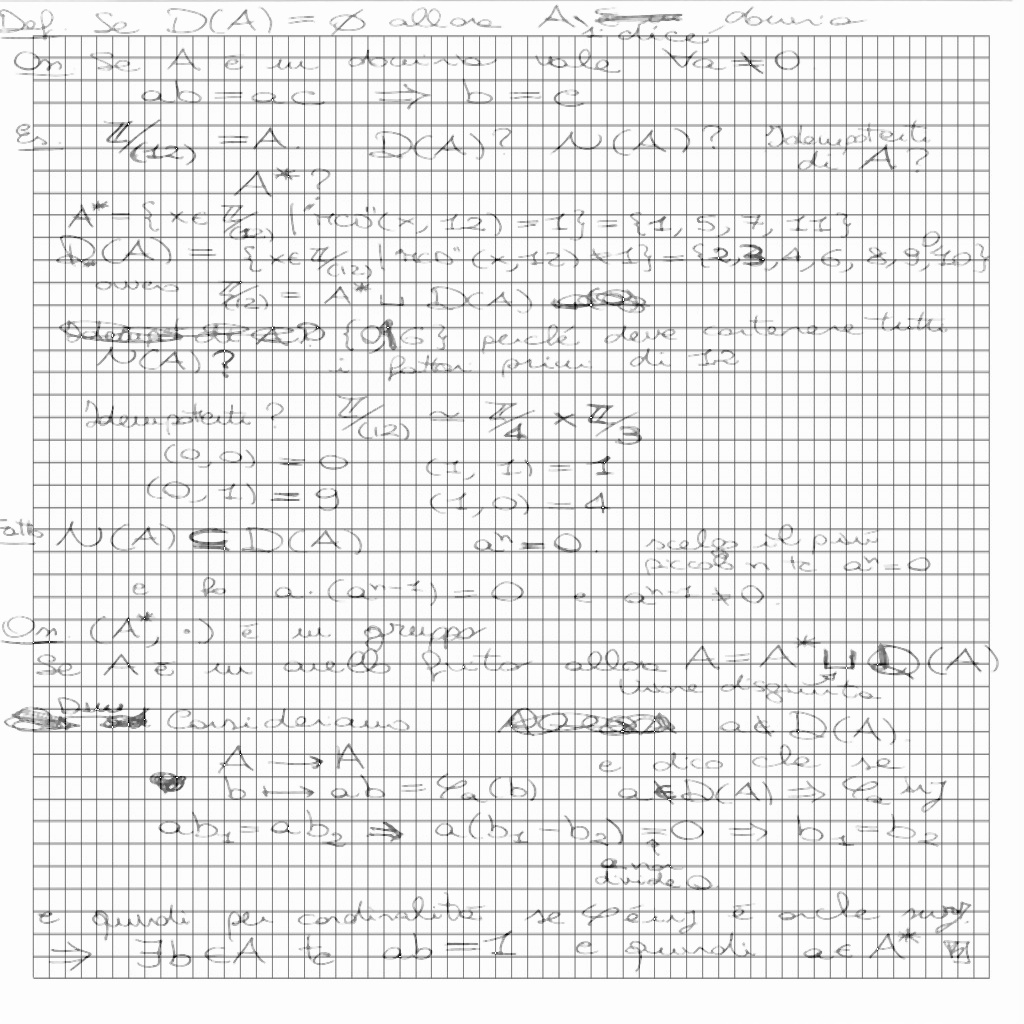 Def. Se D(A) = ∅ allora A si dice dominio
Oss Se A è un dominio vale ∀a ≠ 0
ab = ac ⇒ b = c
Es. ℤ/(12) = A. D(A)? N(A)? Idempotenti di A?
A* ?
A* = { x ∈ ℤ/(12) | "MCD"(x, 12) = 1} = {1, 5, 7, 11}
D(A) = { x ∈ ℤ/(12) | "MCD"(x, 12) ≠ 1} = {2, 3, 4, 6, 8, 9, 10, 0}
ovvero ℤ/(12) = A* ⊔ D(A)
N(A)? {0, 6} perché deve contenere tutti
i fattori primi di 12
Idempotenti? ℤ/(12) ≃ ℤ/4 × ℤ/3
(0,0) = 0 (1, 1) = 1
(0, 1) = 9 (1,0) = 4
Fatto N(A) ⊆ D(A) aⁿ = 0. scelgo il più
piccolo n tc aⁿ = 0
e fo a·(aⁿ⁻¹) = 0 e aⁿ⁻¹ ≠ 0
Oss (A*, ·) è un gruppo
Se A è un anello finito allora A = A* ⊔ D(A)
Unione disgiunta
Dim Consideriamo a ∉ D(A)
A → A e dico che se
b ↦ ab = φₐ(b) a ∉ D(A) ⇒ φₐ inj
ab₁ = ab₂ ⇒ a(b₁ − b₂) = 0 ⇒ b₁ = b₂
↑
a non
divide 0
e quindi per cardinalità se φ è inj è anche surj.
⇒ ∃b ∈ A tc ab = 1 e quindi a ∈ A*